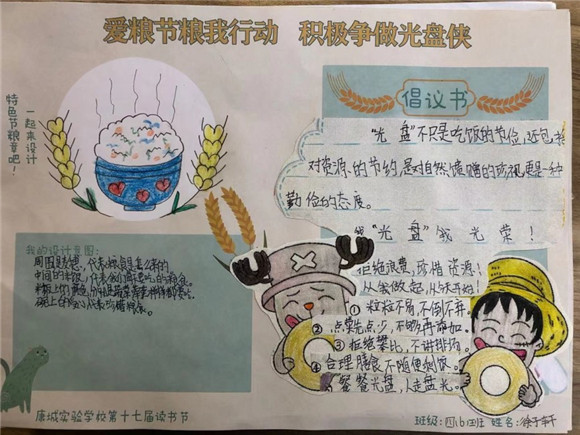 爱粮节粮我行动 积极争做光盘侠
一起来设计
特色节粮章吧！
倡议书
"光 盘"不只是吃饭的节俭,还包括
对资源的节约,是对自然馈赠的珍视,更是一种
勤俭的态度。
我"光 盘"我 光 荣！
拒绝浪费,珍惜资源；
从我做起,从今开始！
① 粒粒不易,不倒不弃。
② 点菜先点少,不够再添加。
③ 拒绝攀比,不讲排场。
④ 合理膳食不随便剩饭。
餐餐光盘,人走盘光。
我的设计意图：
唐城实验学校第十七届读书节
班级：四(6)班 姓名：徐子轩